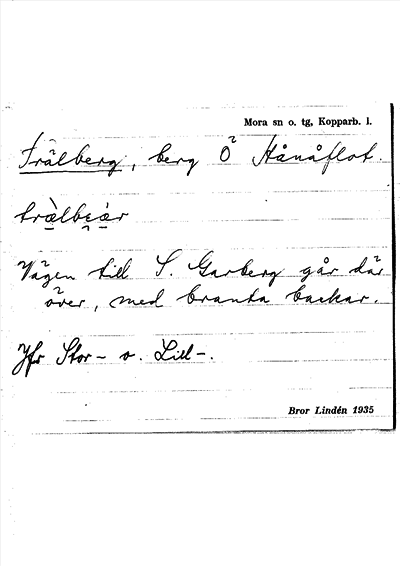 Mora sn o. tg, Kopparb. l.
Trälberg, berg Ö Hånåflot.
Vägen till S. Garberg går där
över, med branta backar.
Jfr Stor- o. Lill-.
Bror Lindén 1935